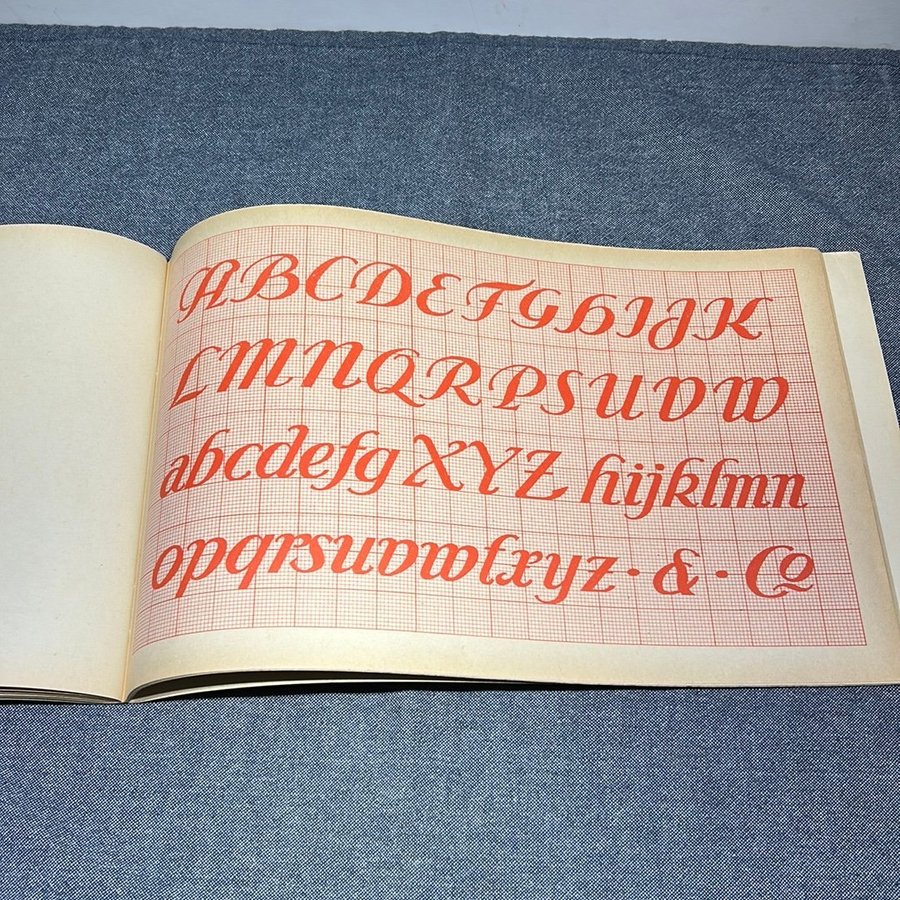 ABCDEFGHIJK
LMNQRPSUVW
abcdefg XYZ hijklmn
opqrsuvwtxyz · & · Co